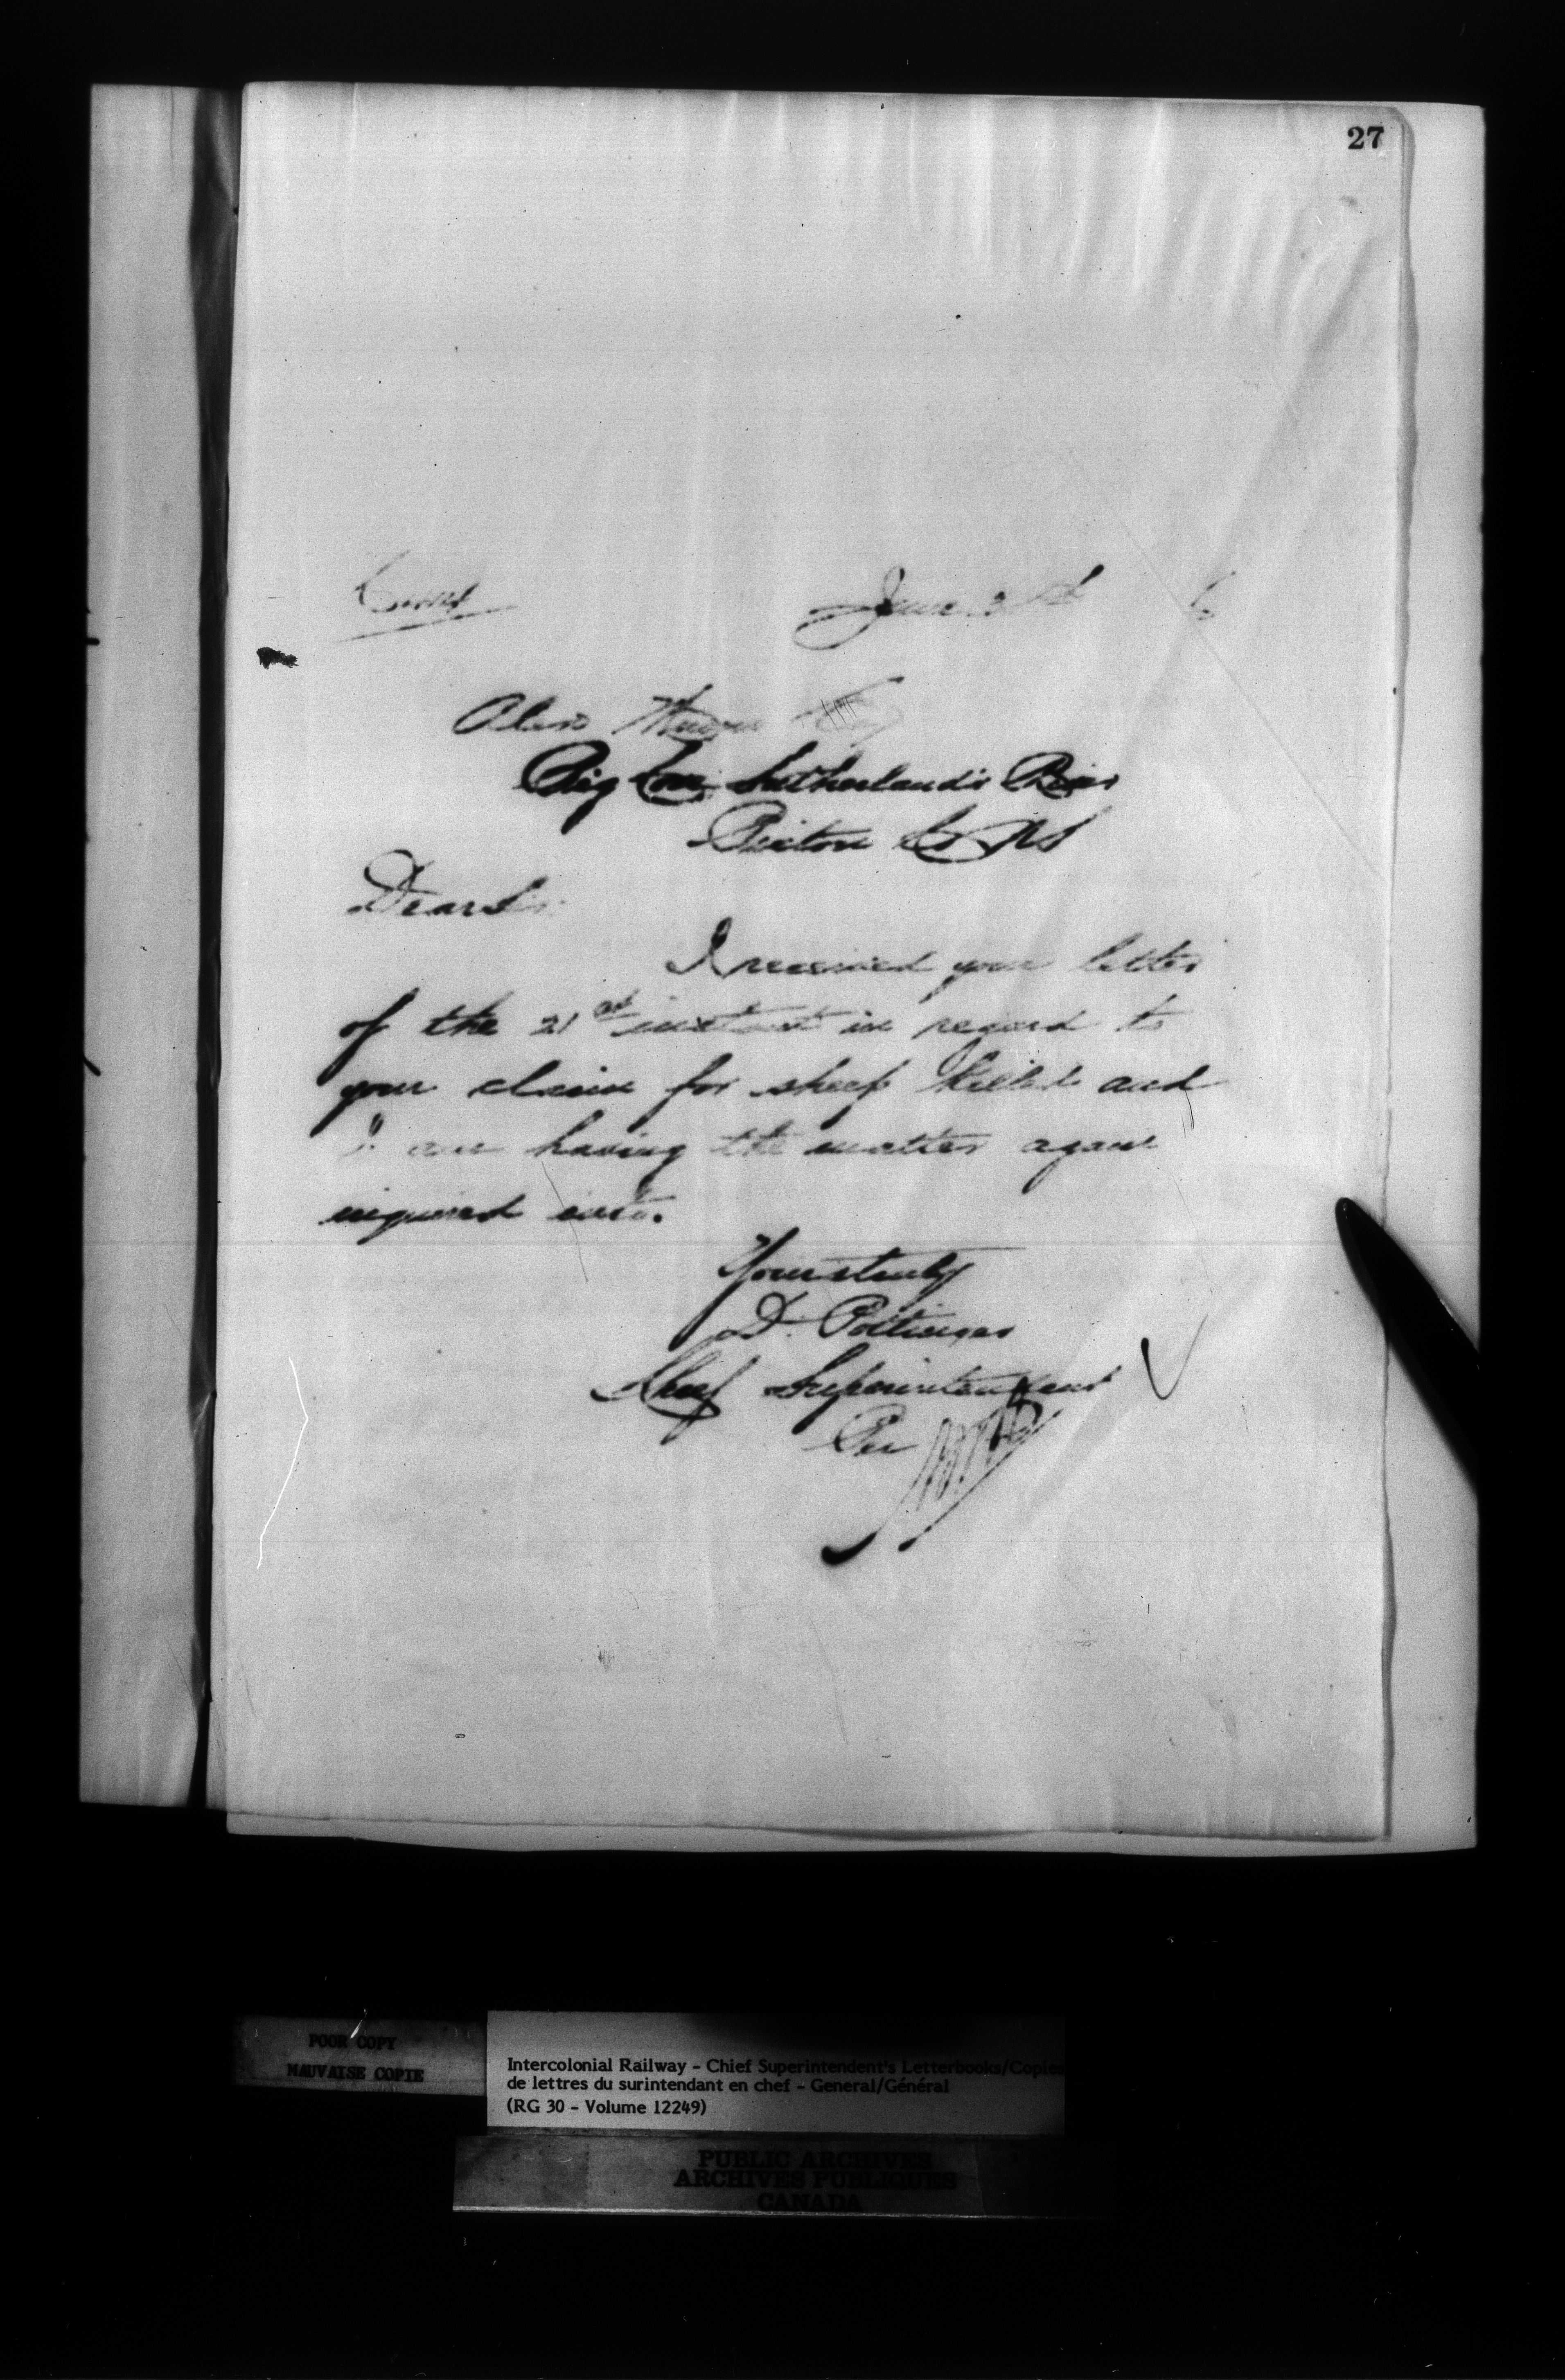 27
June
Pig Loch Sutherland's River
Pictou Co NS
Dear Sir
I received your letter
of the 21st instant in regard to
your claim for sheep killed and
I am having the matter again
inquired into.
Yours truly
D. Pottinger
Chief Superintendent
Per
POOR COPY
MAUVAISE COPIE
Intercolonial Railway - Chief Superintendent's Letterbooks/Copies
de lettres du surintendant en chef - General/Général
(RG 30 - Volume 12249)
PUBLIC ARCHIVES
ARCHIVES PUBLIQUES
CANADA